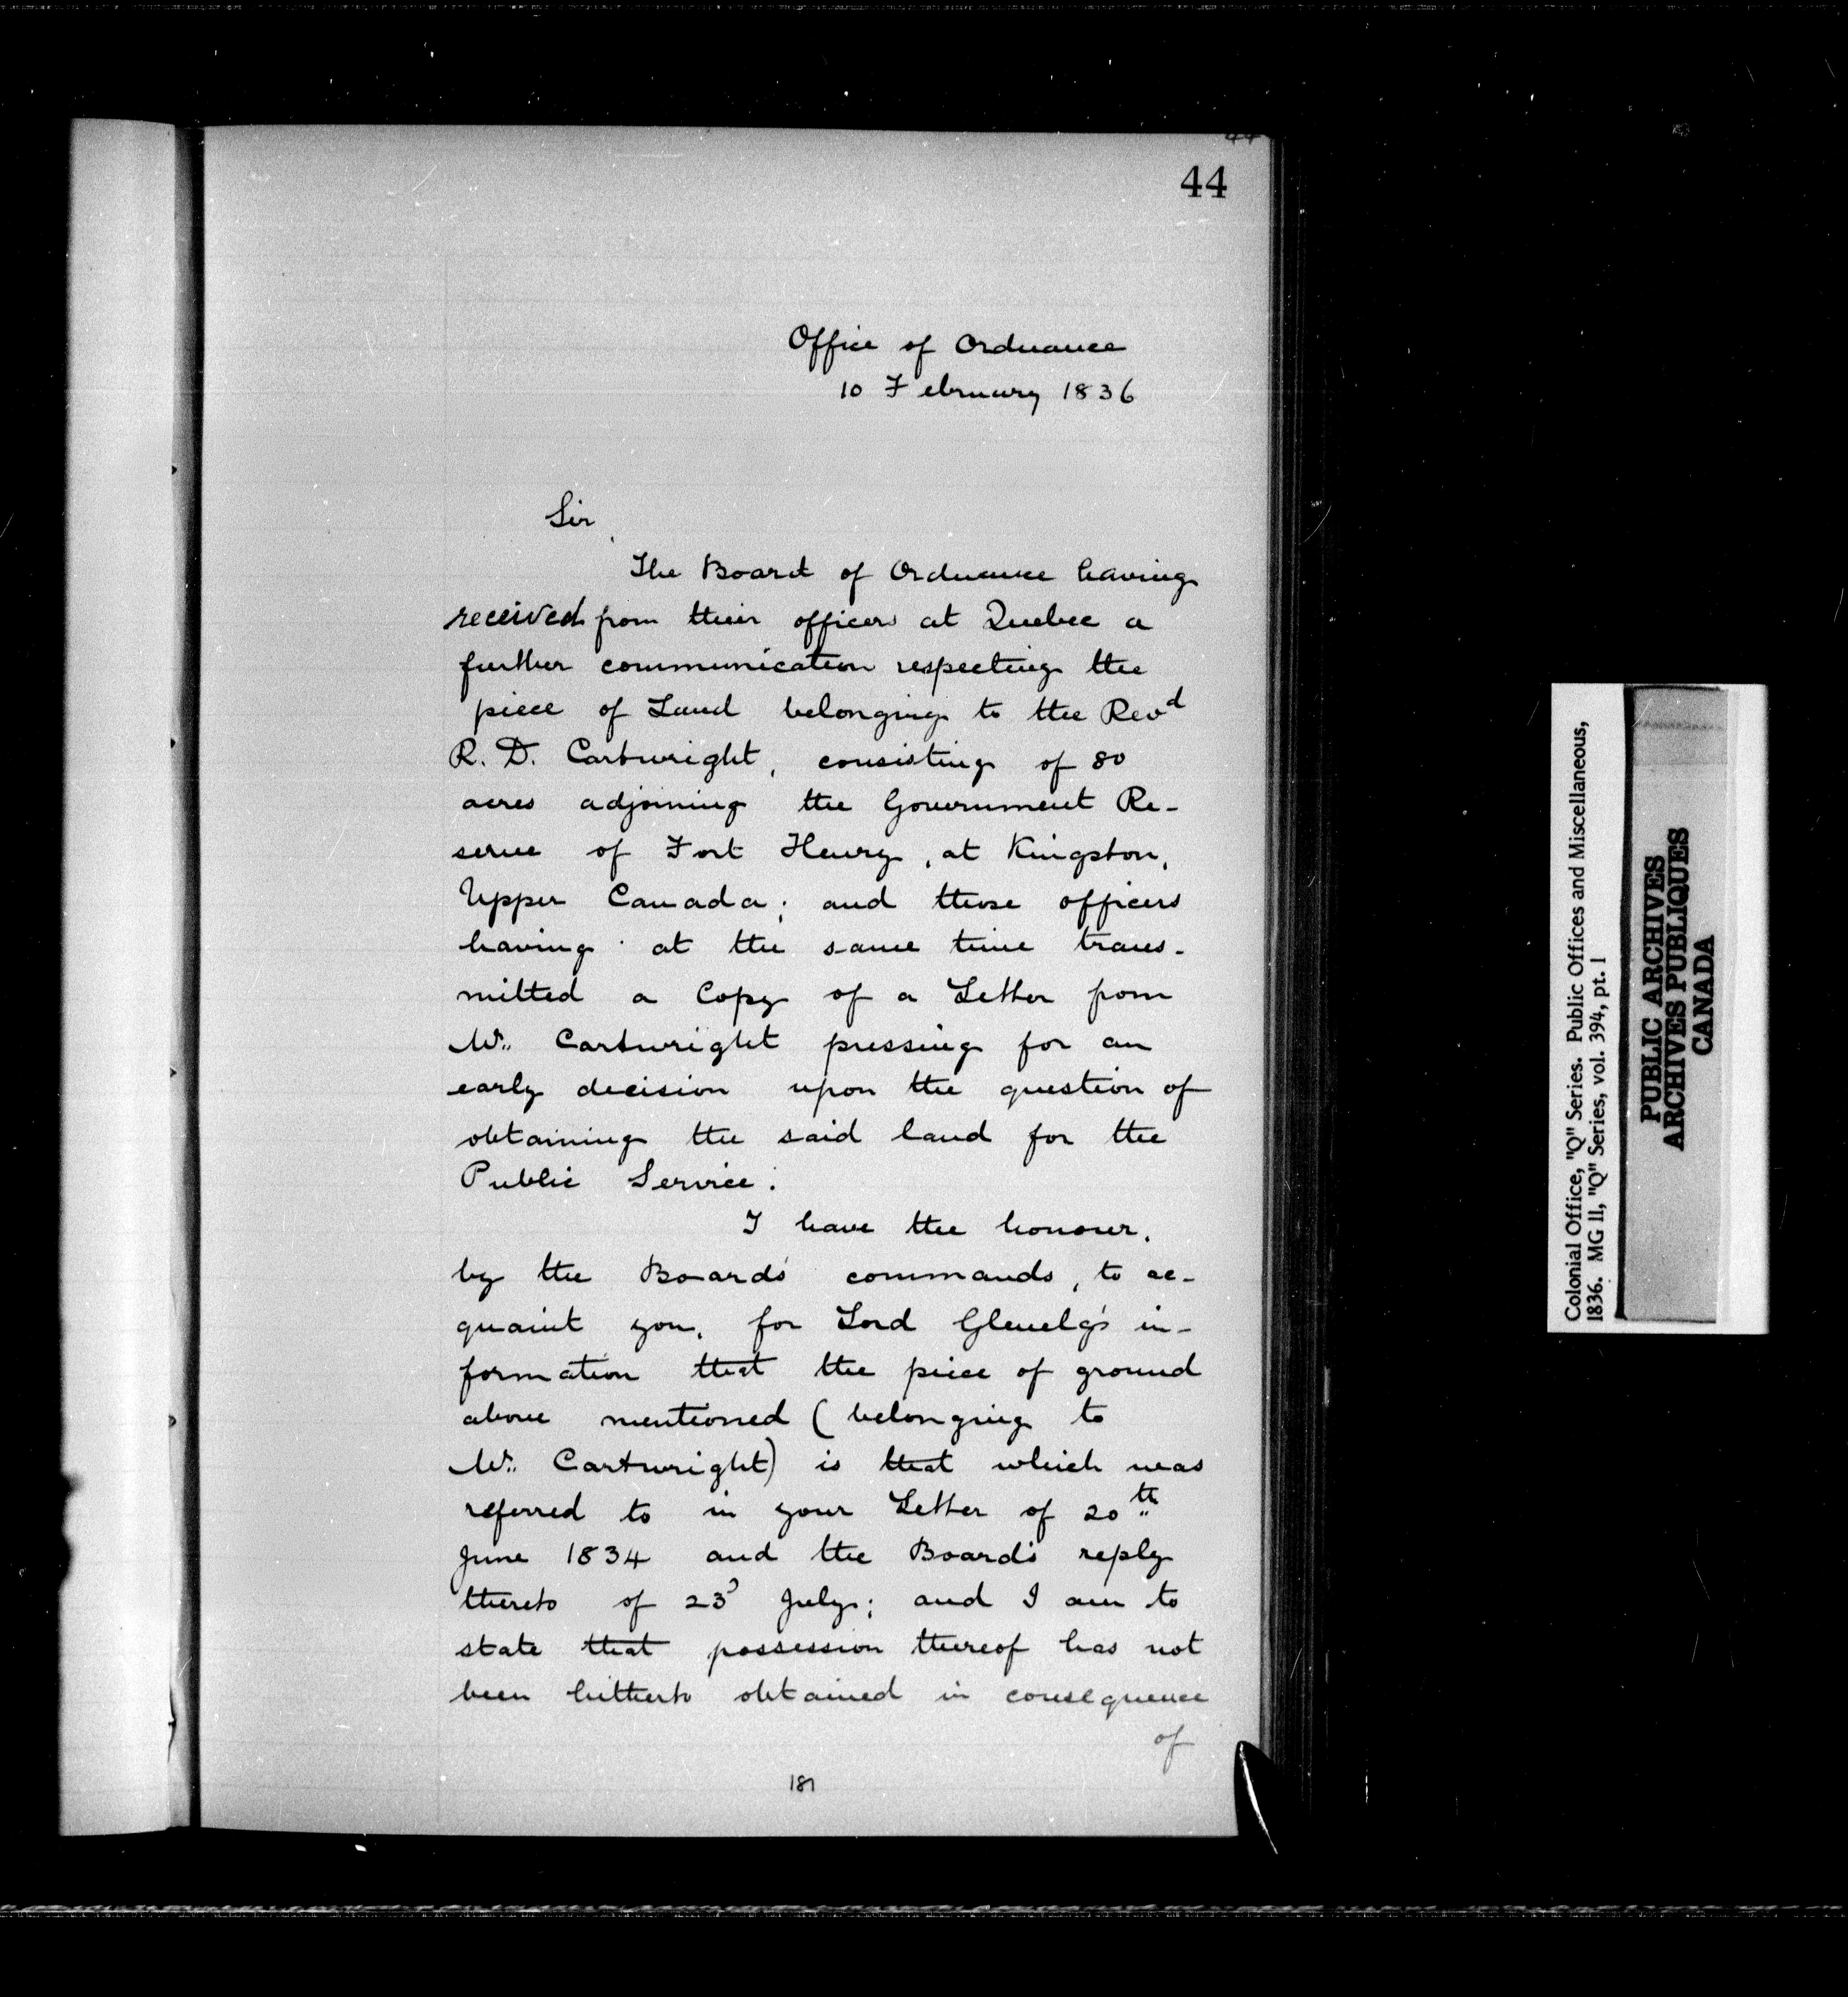 44
Office of Ordnance
10 February 1836
Sir
The Board of Ordnance having
received from their officers at Quebec a
further communication respecting the
piece of Land belonging to the Revd
R. D. Cartwright, consisting of 80
acres adjoining the Government Re-
serve of Fort Henry, at Kingston,
Upper Canada; and those officers
having at the same time trans-
mitted a Copy of a Letter from
Mr. Cartwright pressing for an
early decision upon the question of
obtaining the said land for the
Public Service.
I have the honour,
by the Board's commands, to ac-
quaint you, for Lord Glenelg's in-
formation that the piece of ground
above mentioned (belonging to
Mr. Cartwright) is that which was
referred to in your Letter of 20th
June 1834 and the Board's reply
thereto of 23d July; and I am to
state that possession thereof has not
been hitherto obtained in consequence
of
181
Colonial Office, "Q" Series. Public Offices and Miscellaneous,
1836. MG 11, "Q" Series, vol. 394, pt. 1
PUBLIC ARCHIVES
ARCHIVES PUBLIQUES
CANADA